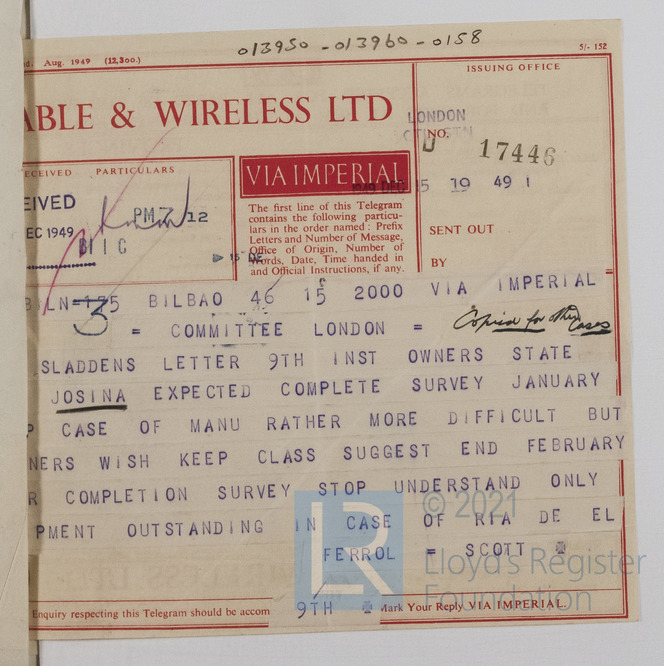 013950 - 013960 - 0158
Aug. 1949 (12,300.)
5/- 152
ABLE & WIRELESS LTD
ISSUING OFFICE
LONDON
NO.
17446
ECEIVED PARTICULARS
VIA IMPERIAL
1949 DEC 15 19 49
EIVED
EC 1949
PM 7 12
The first line of this Telegram
contains the following particu-
lars in the order named : Prefix
Letters and Number of Message,
Office of Origin, Number of
Words, Date, Time handed in
and Official Instructions, if any.
SENT OUT
BY
BILBAO 46 15 2000 VIA IMPERIAL =
3
= COMMITTEE LONDON =
Copied for other
cases
SLADDENS LETTER 9TH INST OWNERS STATE
JOSINA EXPECTED COMPLETE SURVEY JANUARY
P CASE OF MANU RATHER MORE DIFFICULT BUT
NERS WISH KEEP CLASS SUGGEST END FEBRUARY
R COMPLETION SURVEY STOP UNDERSTAND ONLY
PMENT OUTSTANDING IN CASE OF RIA DE EL
FERROL = SCOTT
LR
© 2021
Lloyd's Register
Foundation
Enquiry respecting this Telegram should be accom
9TH
Mark Your Reply VIA IMPERIAL.